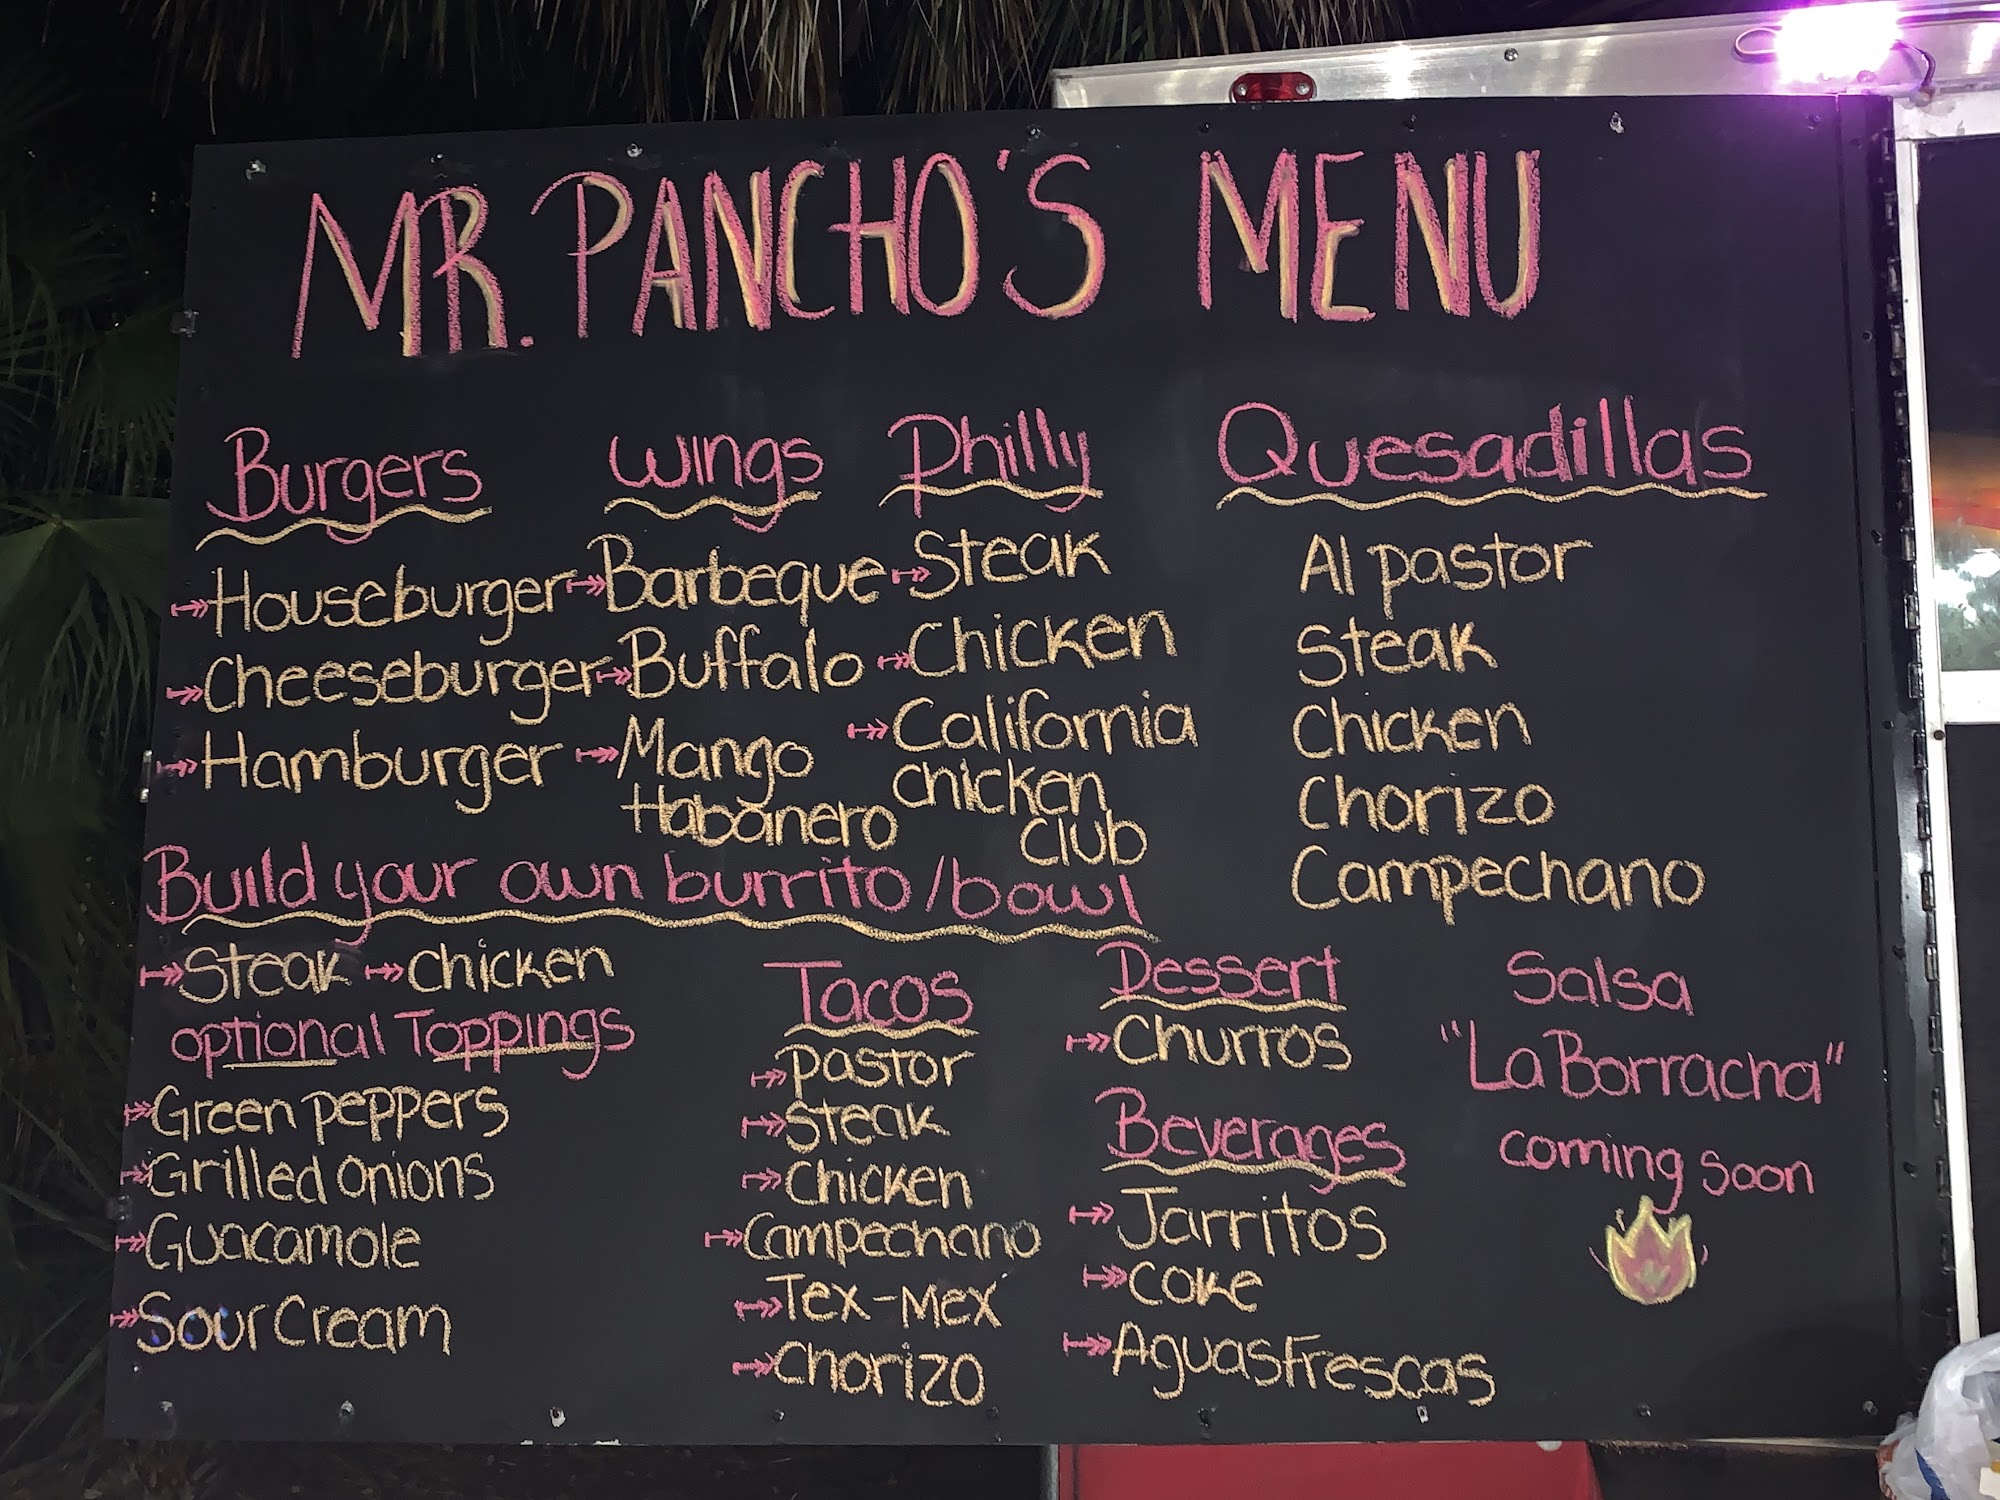 MR. PANCHO'S MENU
Burgers
Houseburger
Cheeseburger
Hamburger
Wings
Barbeque
Buffalo
Mango
Habanero
Philly
Steak
Chicken
California
chicken
club
Quesadillas
Al pastor
Steak
Chicken
Chorizo
Campechano
Build your own burrito/bowl
Steak chicken
optional Toppings
Green peppers
Grilled onions
Guacamole
Sour Cream
Tacos
Pastor
Steak
Chicken
Campechano
Tex-Mex
Chorizo
Dessert
Churros
Beverages
Jarritos
Coke
Aguas Frescas
Salsa
"La Borracha"
coming soon